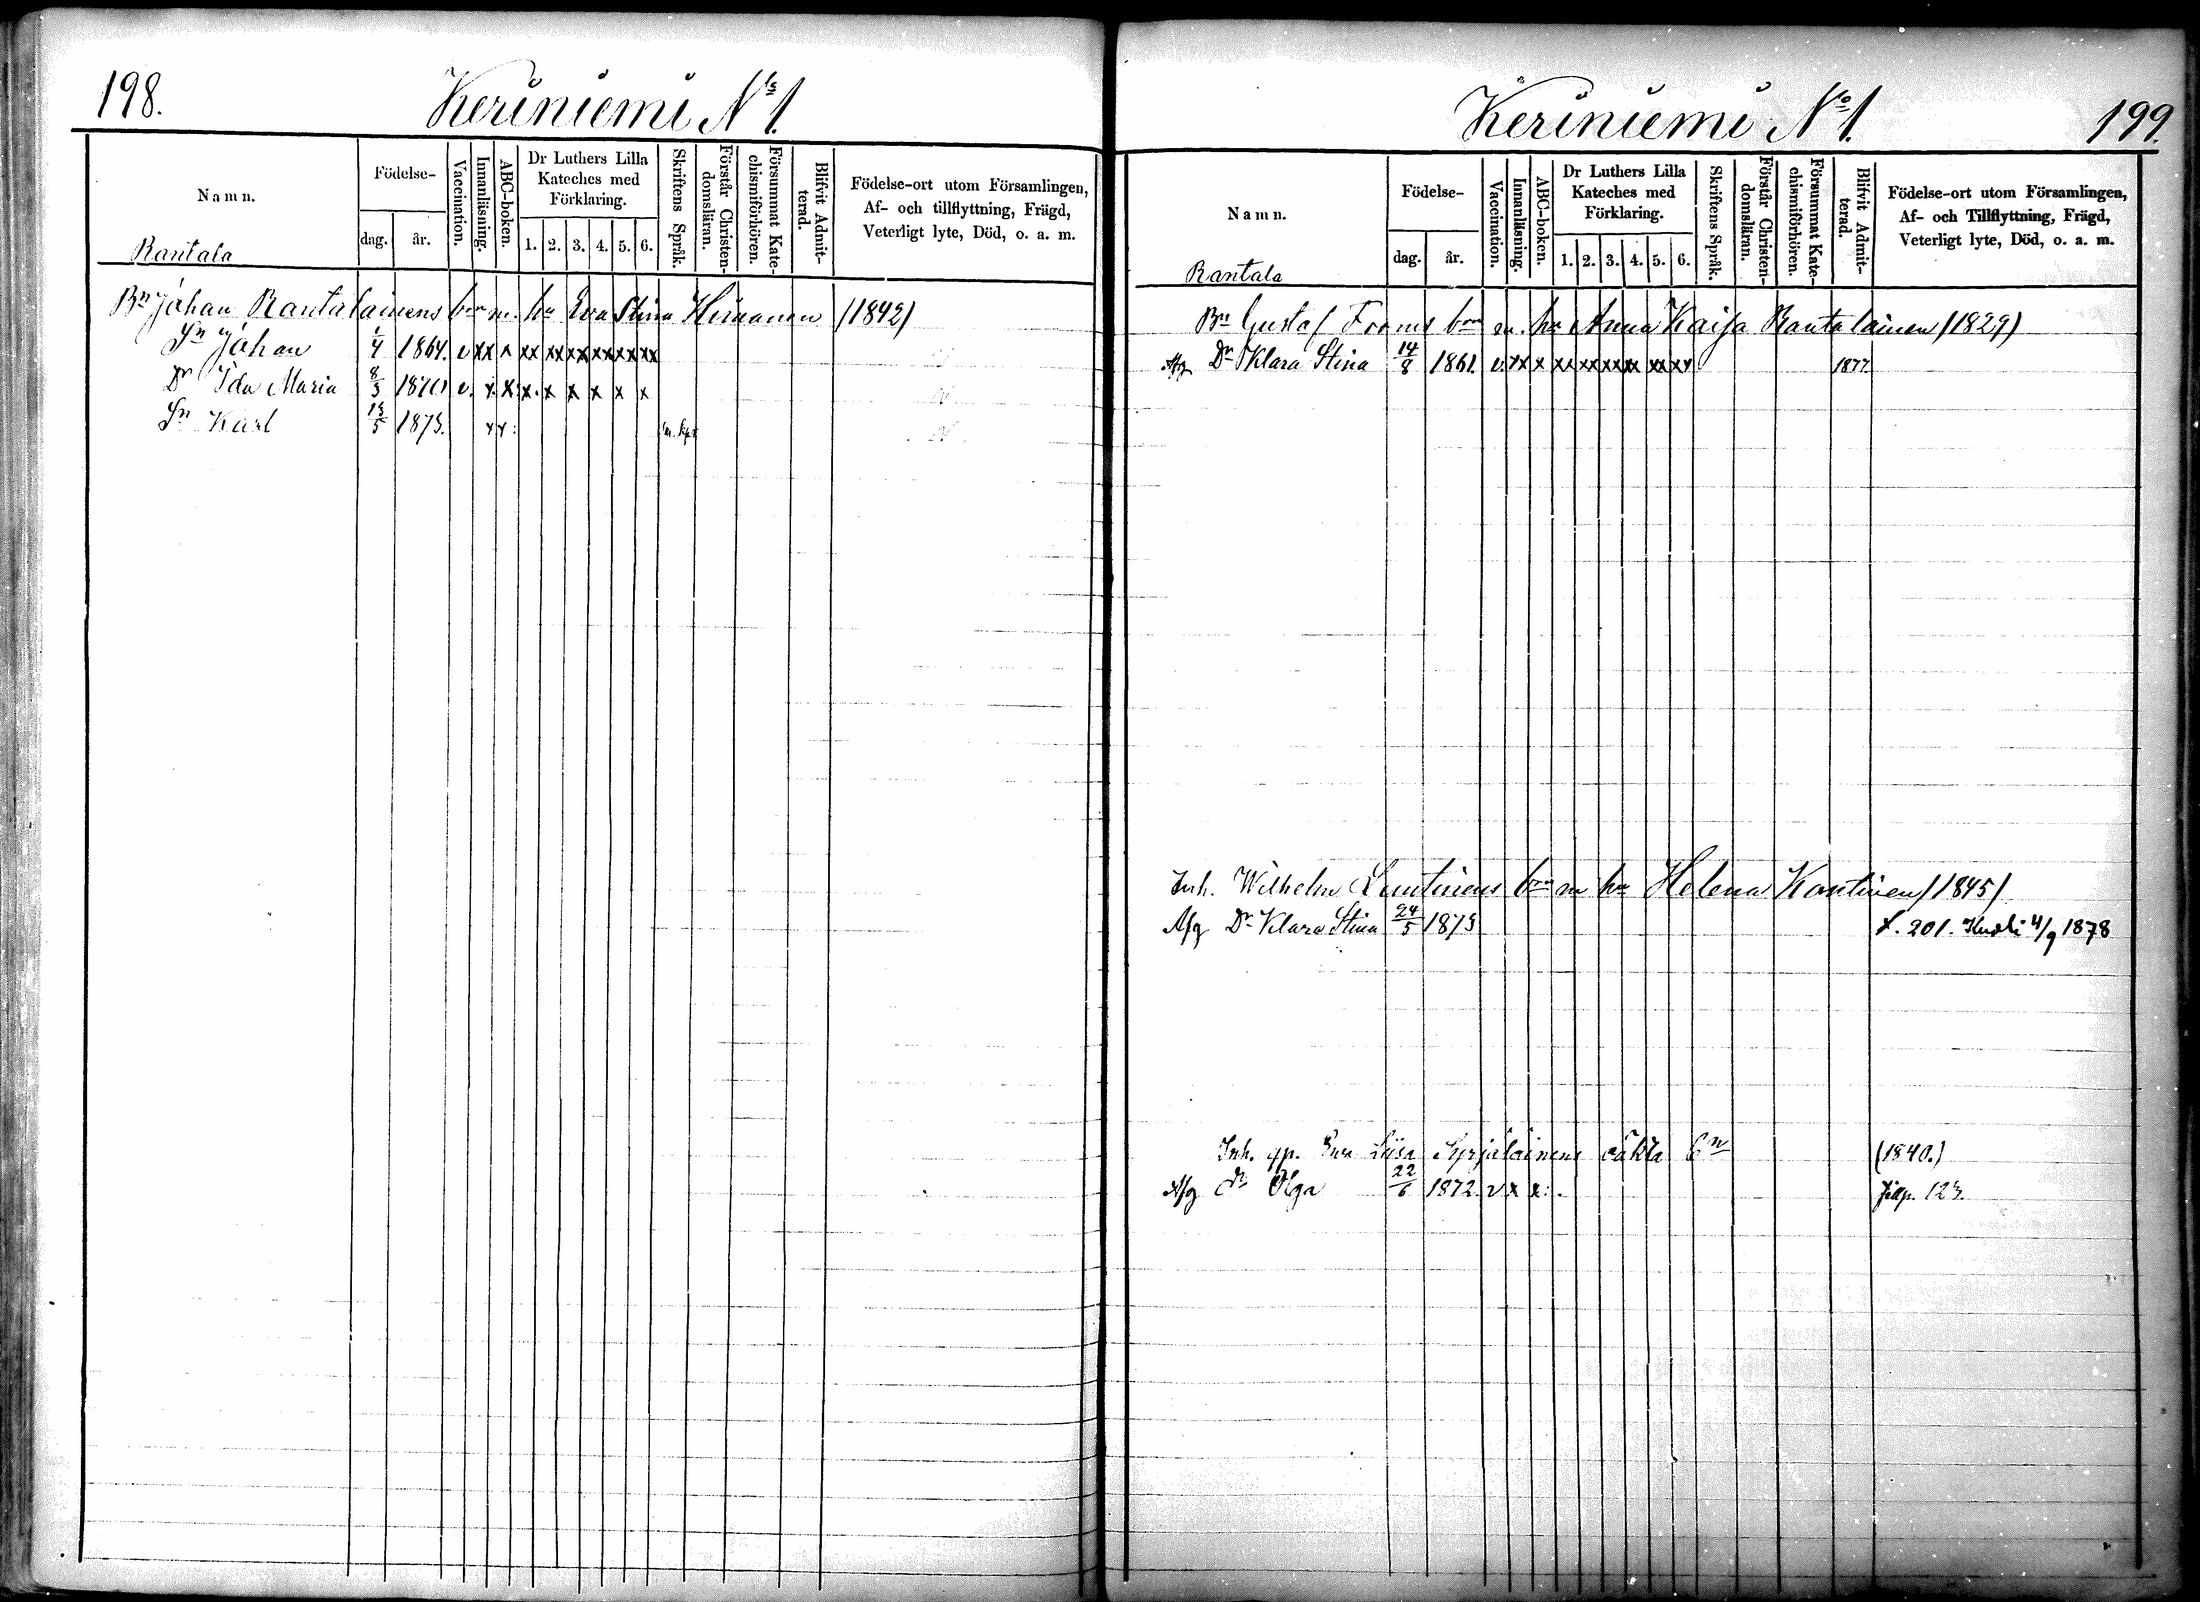 198.
Keriniemi No 1.
Namn.
Födelse-
dag.
år.
Vaccination.
Innanläsning.
ABC-boken.
Dr Luthers Lilla
Kateches med
Förklaring.
1. 2. 3. 4. 5. 6.
Skriftens Språk.
Förstår Christen-
domsläran.
Försummat Kate-
chismiförhören.
Blifvit Admit-
terad.
Födelse-ort utom Församlingen,
Af- och tillflyttning, Frägd,
Veterligt lyte, Död, o. a. m.
Rantala
Bn Johan Rantalainens bn m. hu Eva Stina Himanen (1842)
Sn Johan 1/4 1864. v xx x xx xx xx xx xx xx
Dr Ida Maria 8/3 1870 v. x x x x x x x x
Sn Karl 13/5 1873. x x
Keriniemi No 1.
199.
Namn.
Födelse-
dag.
år.
Vaccination.
Innanläsning.
ABC-boken.
Dr Luthers Lilla
Kateches med
Förklaring.
1. 2. 3. 4. 5. 6.
Skriftens Språk.
Förstår Christen-
domsläran.
Försummat Kate-
chismiförhören.
Blifvit Admit-
terad.
Födelse-ort utom Församlingen,
Af- och Tillflyttning, Frägd,
Veterligt lyte, Död, o. a. m.
Rantala
Bn Gustaf Froms bn m. hu Anna Kaisa Rantalainen (1829)
Afg Dr Klara Stina 14/8 1861. v. xx x xx xx xx xx xx xx 1877
Inh. Wilhelm Luutinens bn m hu Helena Kontinen (1845)
Afg Dr Klara Stina 24/5 1873 f. 201. 4/9 1878
Inh. qp. Eva Liisa Syrjäläinens oäkta bn (1840.)
Afg dr Olga 22/6 1872. v x x. 123.